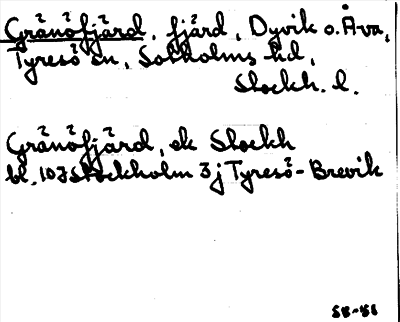 Gränöfjärd, fjärd, Dyvik o. Åva,
Tyresö sn, Sotholms hd,
Stockh. l.
Gränöfjärd, ek Stockh
bl. 107 Stockholm 3j Tyresö-Brevik